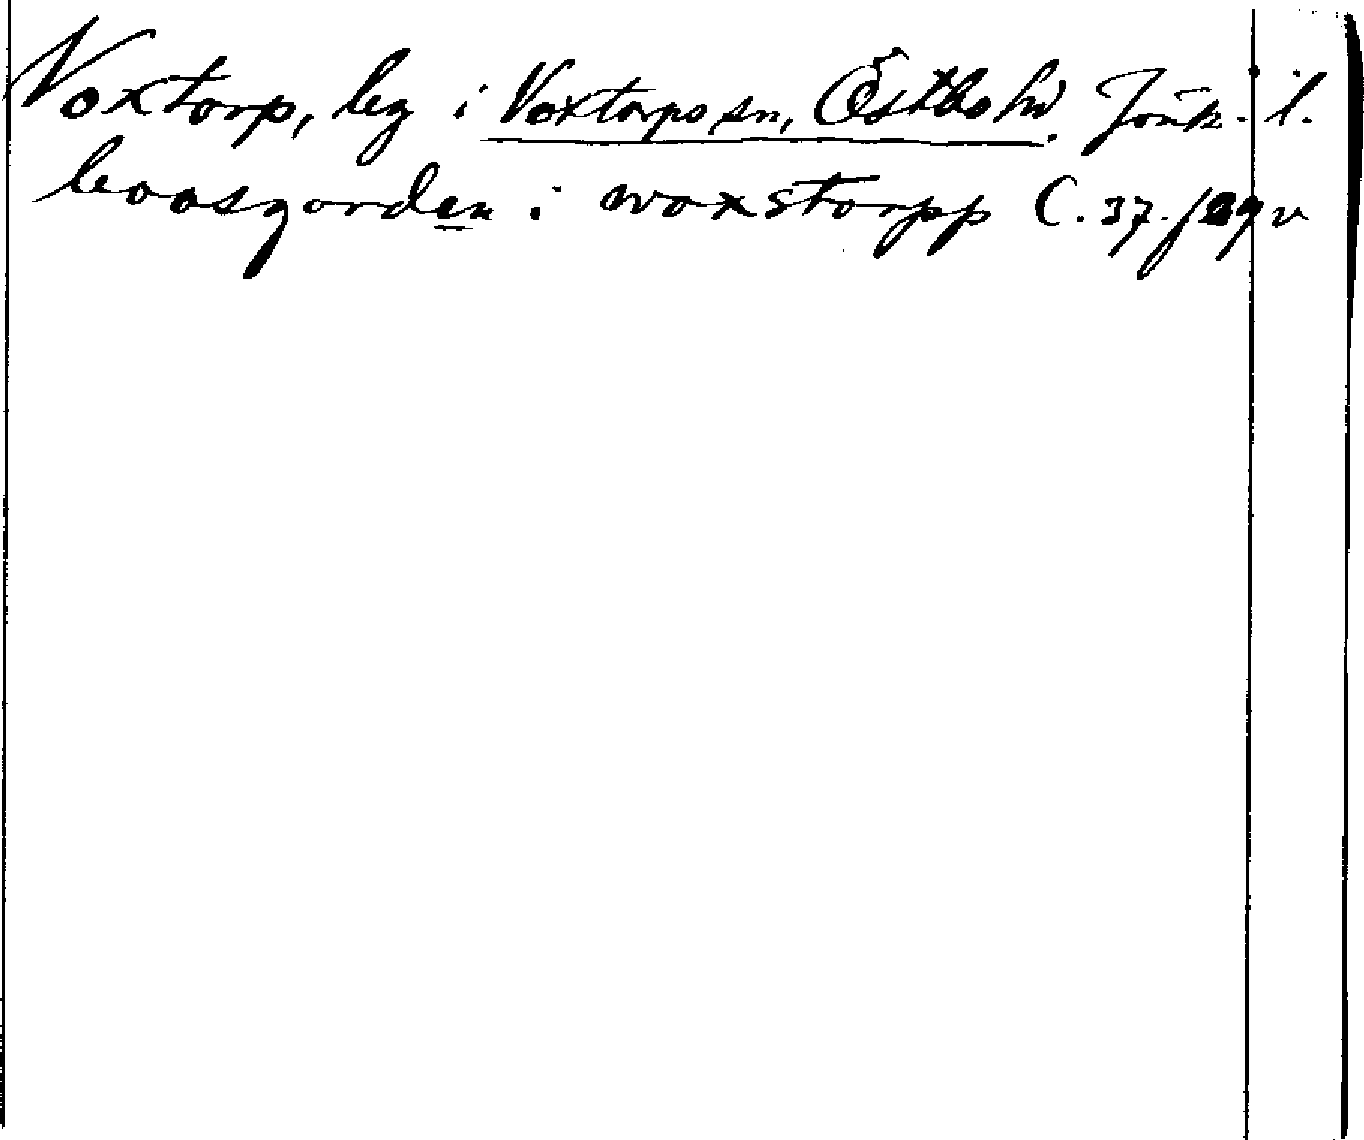 Voxtorp, beg i Voxtorps sn, Östbo hd. Jönk. l.
boosgorden i woxstorpp C. 37. f 29 v